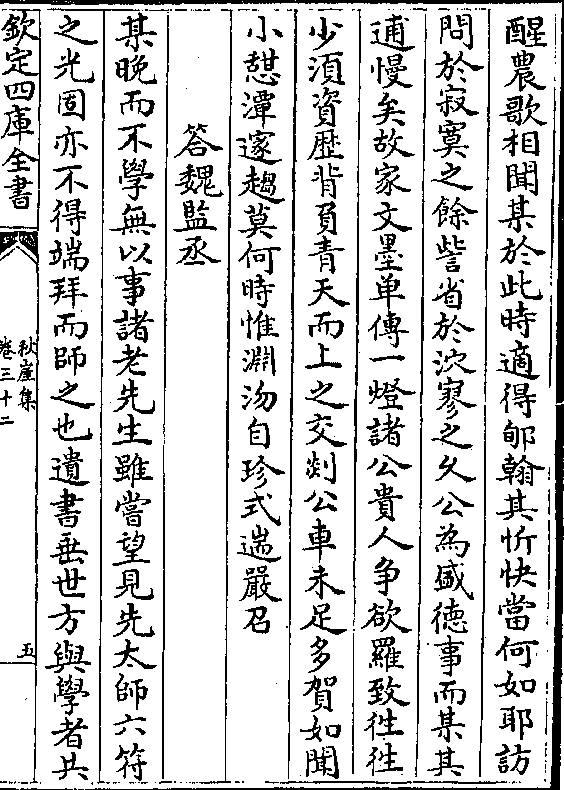 醒農歌相聞某於此時適得郇翰其忻快當何如耶訪
問於寂寞之餘訾省於泬寥之久公為盛徳事而某其
逋慢矣故家文墨单傳一燈諸公貴人争欲羅致徃徃
少須資歴背負青天而上之交剡公車未足多賀如聞
小憇潭邃趨莫何時惟淵沕自珍式遄嚴召
答魏監丞
某晚而不學無以事諸老先生雖嘗望見先太師六符
之光固亦不得端拜而師之也遺書垂世方與學者共
欽定四庫全書
秋崖集
卷三十二
五